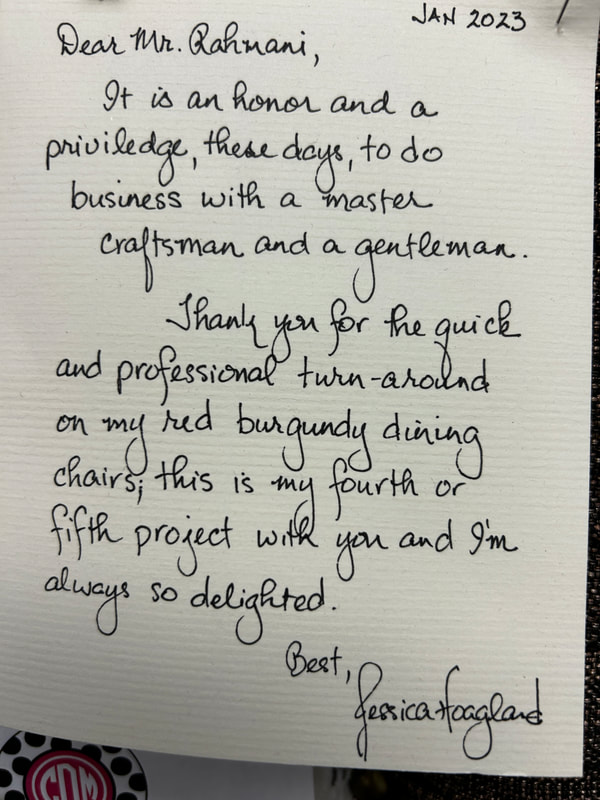 JAN 2023
Dear Mr. Rahmani,
It is an honor and a
priviledge, these days, to do
business with a master
craftsman and a gentleman.
Thank you for the quick
and professional turn-around
on my red burgundy dining
chairs; this is my fourth or
fifth project with you and I'm
always so delighted.
Best,
Jessica Hoagland
CDM